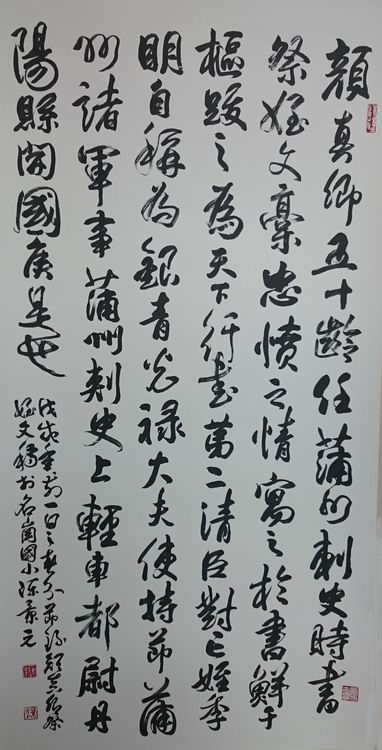 顏真卿五十齡任蒲州刺史時書
祭姪文稾忠憤之情寓之於書鮮于
樞跋之為天下行書第二清臣對亡姪季
明自稱為銀青光祿大夫使持節蒲
州諸軍事蒲州刺史上輕車都尉丹
陽縣開國侯是也
戊戌前一日之節顏真卿祭
姪文稿於名崗國小陳景元